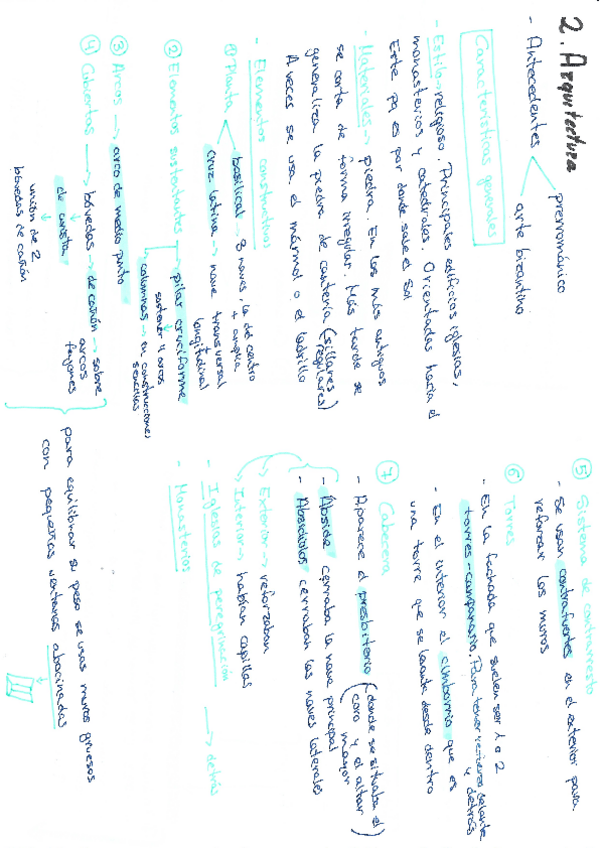 2. Arquitectura
- Antecedentes
prerrománico
arte bizantino
Características generales
- Estilo religioso. Principales edificios iglesias,
monasterios y catedrales. Orientadas hacia el
Este pq es por donde sale el Sol
- Materiales → piedra. En los más antiguos
se corta de forma irregular. Más tarde se
generaliza la piedra de cantería (sillares regulares)
A veces se usa el mármol o el ladrillo
- Elementos constructivos
① Planta
basilical → 3 naves, la de centro + amplia
cruz latina → nave transversal + longitudinal
② Elementos sustentantes → pilar cruciforme
sustener 4 arcos
columnas → en construcciones sencillas
③ Arcos → arco de medio punto
④ Cubiertas → bóvedas → de cañón → sobre arcos fajones
de arista
unión de 2
bóvedas de cañón
para equilibrar su peso se usas muros gruesos
con pequeñas ventanas abocinadas
⑤ Sistema de contrarresto
- Se usan contrafuertes en el exterior para
reforzar los muros
⑥ Torres
- En la fachada que suelen ser 1 o 2
torres-campanario. Para tener delante
y detrás
- En el interior el cimborrio que es
una torre que se levanta desde dentro
⑦ Cabecera
- Aparece el presbiterio (donde se situaba el
coro y el altar
mayor)
- Ábside cerraba la nave principal
- Absidiolos cerraban las naves laterales
→ Exterior → reforzaban
→ Interior → habían capillas
- Iglesias de peregrinación
→ detrás
- Monasterios